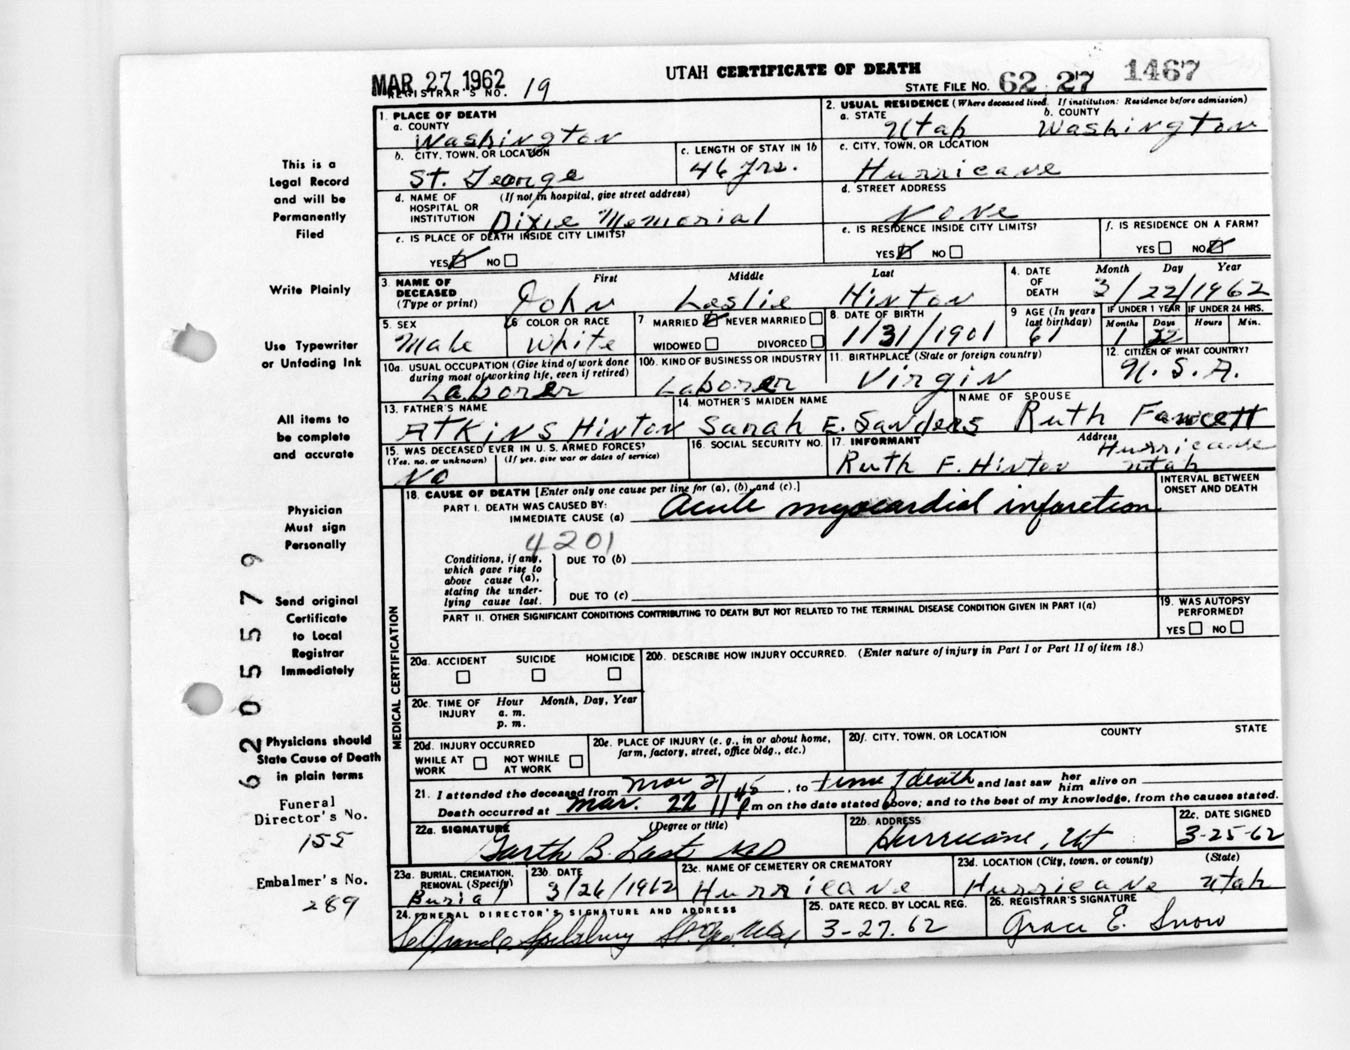 UTAH CERTIFICATE OF DEATH
MAR 27 1962
REGISTRAR'S NO. 19
STATE FILE NO. 62 27 1467
1. PLACE OF DEATH
a. COUNTY
Washington
2. USUAL RESIDENCE (Where deceased lived. If institution: Residence before admission)
a. STATE b. COUNTY
Utah Washington
b. CITY, TOWN, OR LOCATION
St. George
c. LENGTH OF STAY IN 1b
46 yrs.
c. CITY, TOWN, OR LOCATION
Hurricane
d. NAME OF HOSPITAL OR INSTITUTION (If not in hospital, give street address)
Dixie Memorial
d. STREET ADDRESS
None
e. IS PLACE OF DEATH INSIDE CITY LIMITS?
YES NO
e. IS RESIDENCE INSIDE CITY LIMITS?
YES NO
f. IS RESIDENCE ON A FARM?
YES NO
3. NAME OF DECEASED (Type or print)
First Middle Last
John Leslie Hinton
4. DATE OF DEATH
Month Day Year
3/22/1962
5. SEX
Male
6 COLOR OR RACE
White
7 MARRIED NEVER MARRIED
WIDOWED DIVORCED
8. DATE OF BIRTH
1/31/1901
9 AGE (In years last birthday)
61
IF UNDER 1 YEAR IF UNDER 24 HRS.
Months Days Hours Min.
1 22
10a. USUAL OCCUPATION (Give kind of work done during most of working life, even if retired)
Laborer
10b. KIND OF BUSINESS OR INDUSTRY
Laborer
11. BIRTHPLACE (State or foreign country)
Virgin
12. CITIZEN OF WHAT COUNTRY?
U.S.A.
13. FATHER'S NAME
Atkins Hinton
14. MOTHER'S MAIDEN NAME
Sarah E. Sanders
NAME OF SPOUSE
Ruth Fawcett
15. WAS DECEASED EVER IN U.S. ARMED FORCES?
(Yes, no, or unknown) (If yes, give war or dates of service)
No
16. SOCIAL SECURITY NO.
17. INFORMANT Address
Ruth F. Hinton Hurricane Utah
18. CAUSE OF DEATH [Enter only one cause per line for (a), (b), and (c).]
INTERVAL BETWEEN ONSET AND DEATH
PART I. DEATH WAS CAUSED BY:
IMMEDIATE CAUSE (a) Acute myocardial infarction
4201
Conditions, if any, which gave rise to above cause (a), stating the underlying cause last.
DUE TO (b)
DUE TO (c)
PART II. OTHER SIGNIFICANT CONDITIONS CONTRIBUTING TO DEATH BUT NOT RELATED TO THE TERMINAL DISEASE CONDITION GIVEN IN PART I(a)
19. WAS AUTOPSY PERFORMED?
YES NO
MEDICAL CERTIFICATION
20a. ACCIDENT SUICIDE HOMICIDE
20b. DESCRIBE HOW INJURY OCCURRED. (Enter nature of injury in Part I or Part II of item 18.)
20c. TIME OF INJURY Hour Month, Day, Year
a. m.
p. m.
20d. INJURY OCCURRED
WHILE AT WORK NOT WHILE AT WORK
20e. PLACE OF INJURY (e. g., in or about home, farm, factory, street, office bldg., etc.)
20f. CITY, TOWN, OR LOCATION COUNTY STATE
21. I attended the deceased from Mar 21, to time of death and last saw her him alive on
Death occurred at Mar. 22 11 45 P m on the date stated above; and to the best of my knowledge, from the causes stated.
22a. SIGNATURE (Degree or title)
Garth B. Last MD
22b. ADDRESS
Hurricane, Ut
22c. DATE SIGNED
3-25-62
23a. BURIAL, CREMATION, REMOVAL (Specify)
Burial
23b. DATE
3/26/1962
23c. NAME OF CEMETERY OR CREMATORY
Hurricane
23d. LOCATION (City, town, or county) (State)
Hurricane Utah
24. FUNERAL DIRECTOR'S SIGNATURE AND ADDRESS
Spilsbury
25. DATE RECD. BY LOCAL REG.
3-27-62
26. REGISTRAR'S SIGNATURE
Grace E. Snow
This is a
Legal Record
and will be
Permanently
Filed
Write Plainly
Use Typewriter
or Unfading Ink
All items to
be complete
and accurate
Physician
Must sign
Personally
Send original
Certificate
to Local
Registrar
Immediately
Physicians should
State Cause of Death
in plain terms
Funeral
Director's No.
155
Embalmer's No.
289
6205579